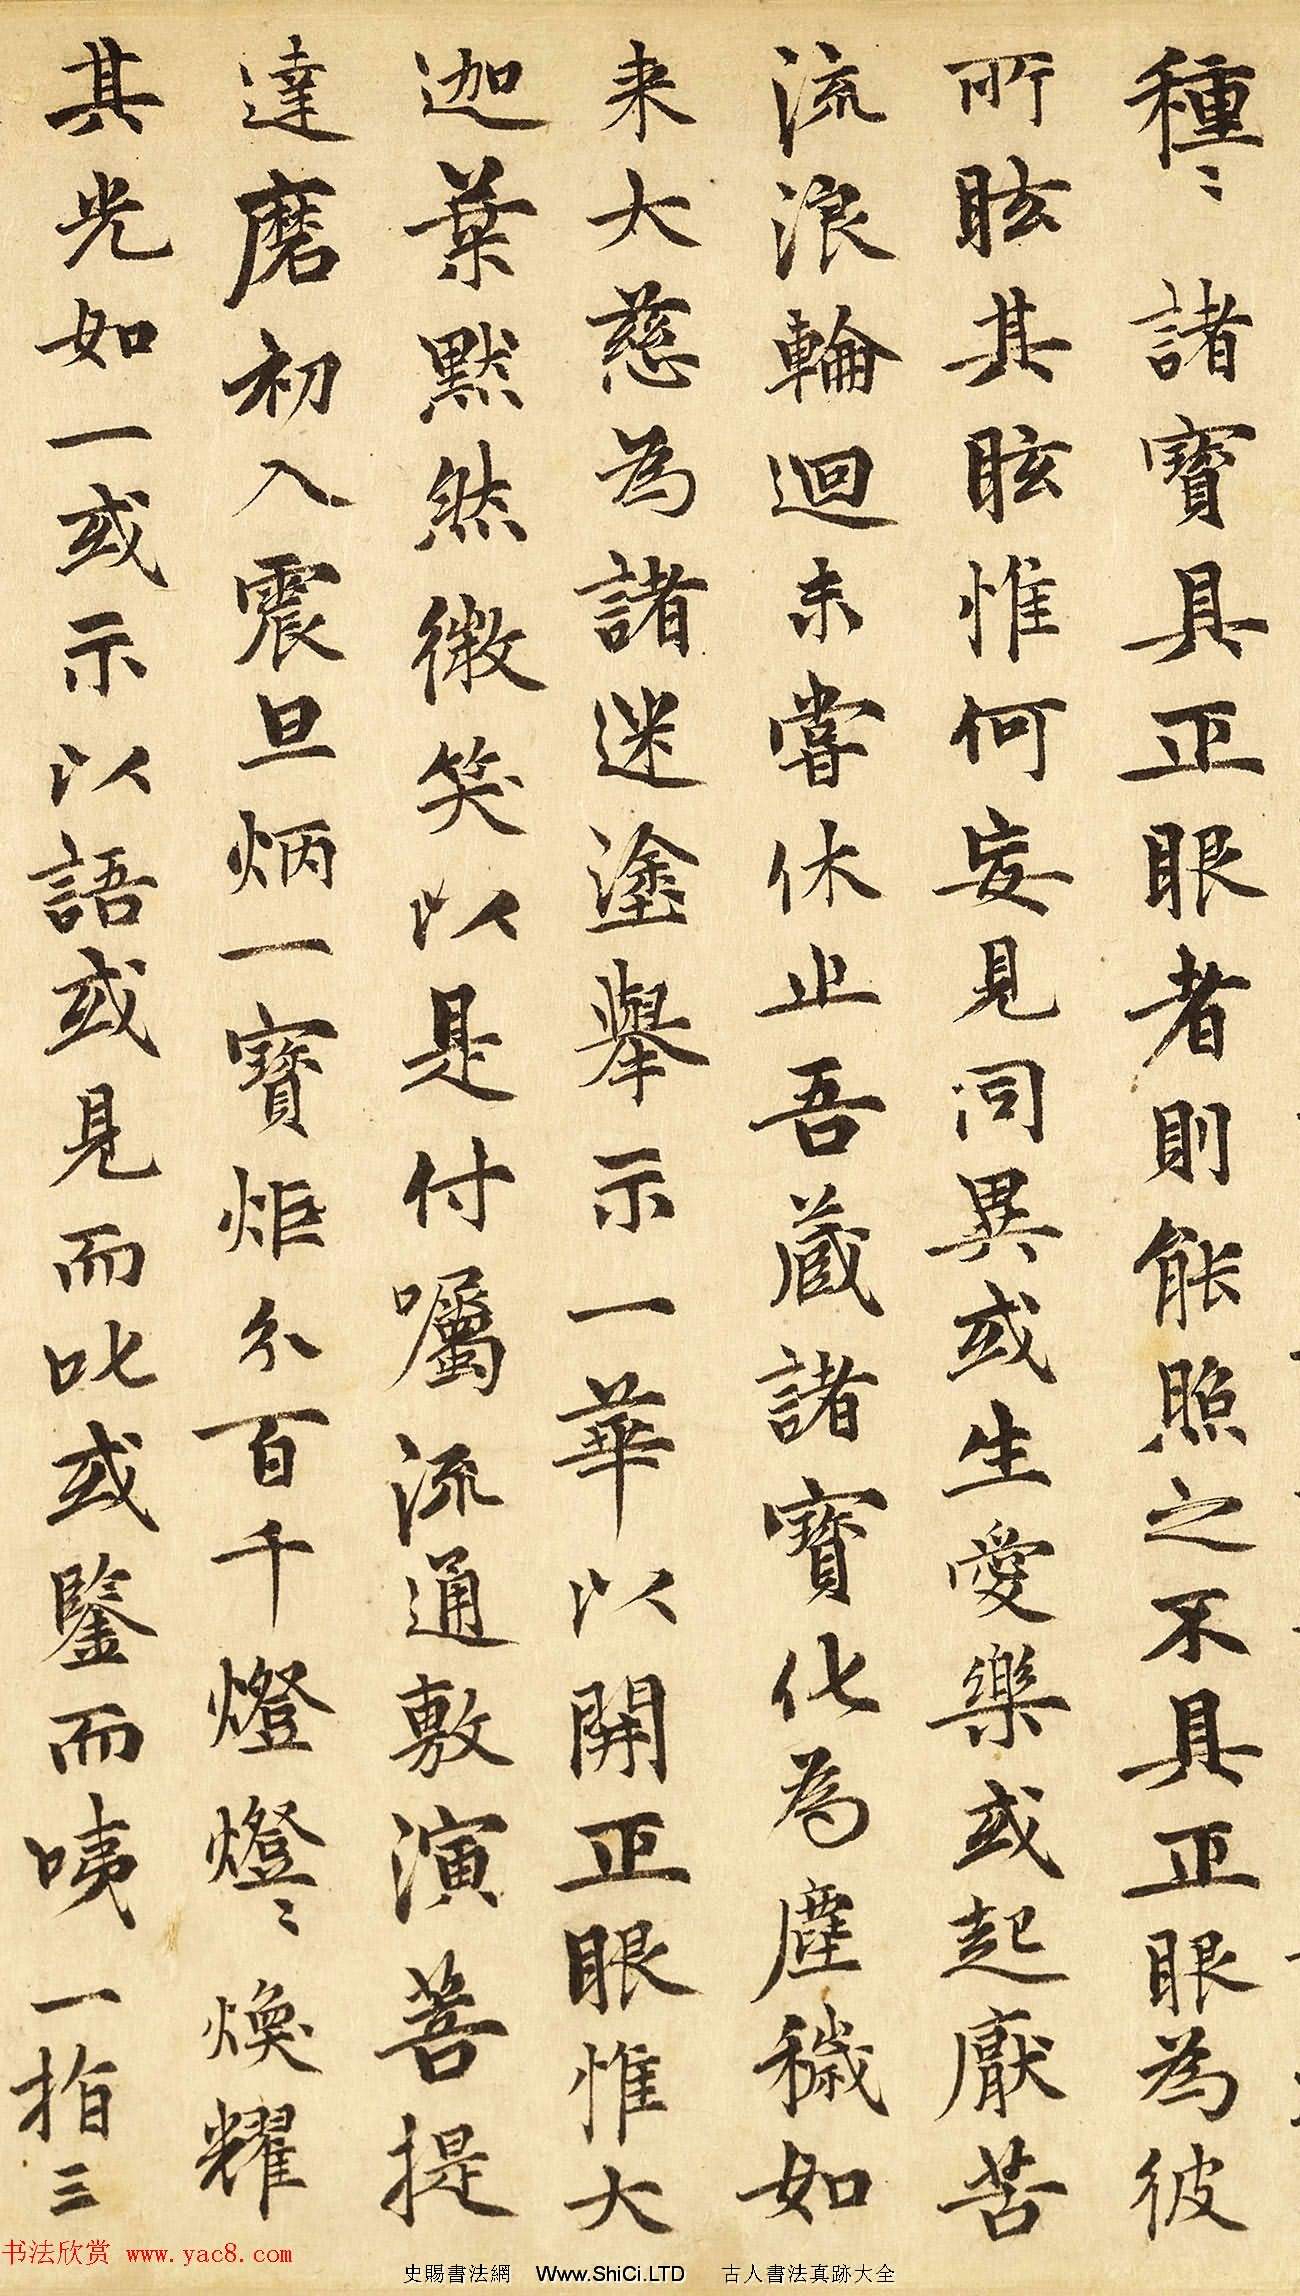 種〻諸寶具正眼者則能照之不具正眼為彼
所眩其眩惟何妄見同異或生愛樂或起厭苦
流浪輪迴未嘗休止吾藏諸寶化為塵穢如
来大慈為諸迷塗舉示一華以開正眼惟大
迦葉默然微笑以是付囑流通敷演菩提
達磨初入震旦炳一寶炬分百千燈燈〻煥耀
其光如一或示以語或見而叱或鑒而咦一指三
书法欣赏 www.yac8.com
史賜書法網 Www.ShiCi.LTD 古人書法真跡大全